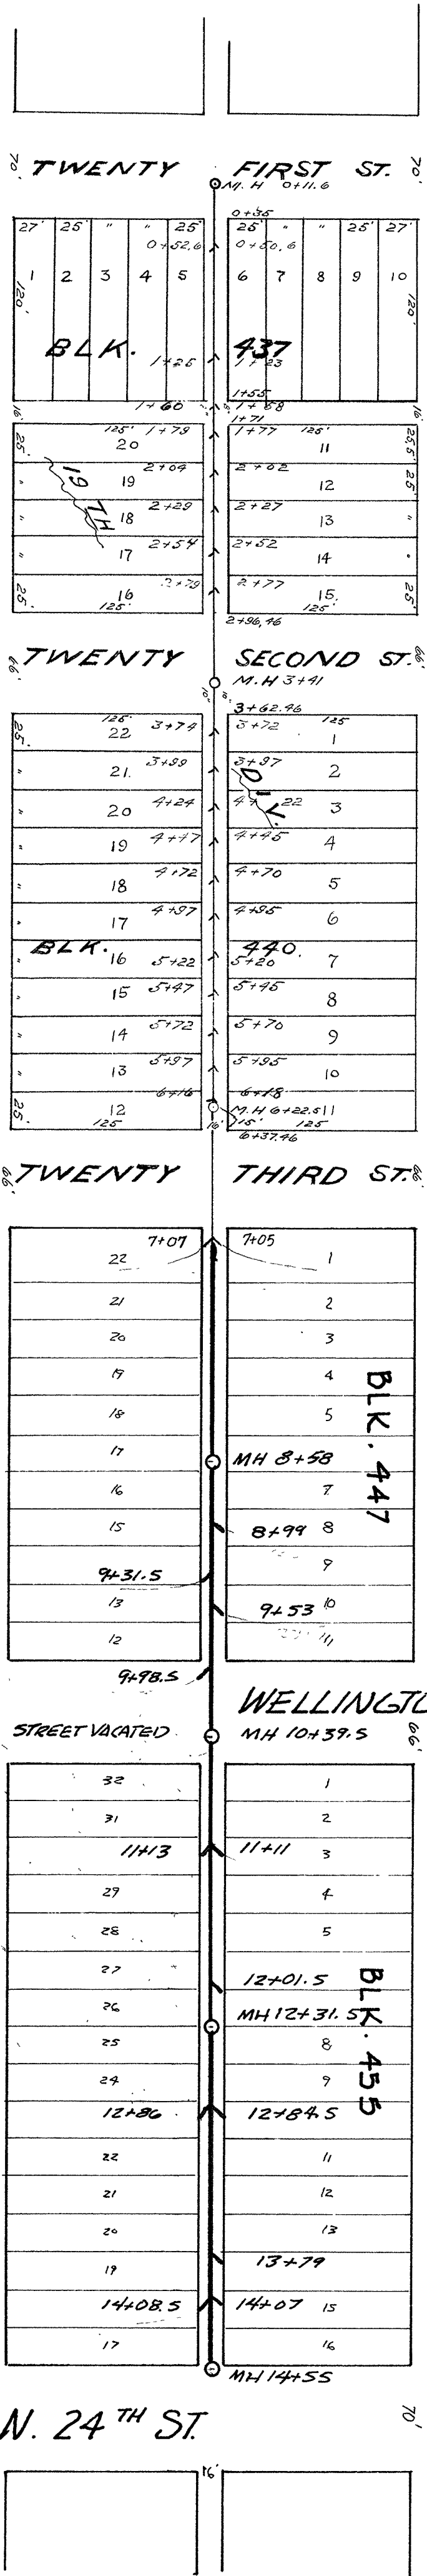 70' TWENTY FIRST ST. 70'
M.H 0+11.6
0+35
27' 25' " " 25' 25' " " 25' 27'
0+52.6 0+50.6
1 2 3 4 5 6 7 8 9 10
120' 120'
BLK. 437
1+25 1+23
1+55
16' 1+60 1+58 16'
1+71
125' 1+79 1+77 125'
25' 20 11 25.5'
2+04 2+02
" 19 12 25'
19 TH
2+29 2+27
" 18 13 "
2+54 2+52
" 17 14 "
2+79 2+77
25' 16 15. 25'
125' 125'
2+96.46
66' TWENTY SECOND ST. 66'
M.H 3+41
10" 10"
3+62.46
125' 3+74 3+72 125
25' 22 1
3+99 3+97
" 21. 2
DIV.
4+24 4+22
" 20 3
4+47 4+45
" 19 4
4+72 4+70
" 18 5
4+97 4+95
" 17 6
BLK. 440.
" 16 5+22 5+20 7
5+47 5+45
15 8
5+72 5+70
" 14 9
5+97 5+95
" 13 10
6+16 6+18
25' 12 M.H 6+22.5 11
125 16' 15' 125
6+37.46
66' TWENTY THIRD ST. 66'
7+07 7+05
22 1
21 2
20 3
19 4
BLK. 447
18 5
17
MH 8+58
16 7
15 8+99 8
9
9+31.5
13 9+53 10
12 11
9+98.5
WELLINGTO
STREET VACATED MH 10+39.5 66'
32 1
31 2
11+13 11+11 3
29 4
28 5
27 12+01.5
BLK. 455
26 MH 12+31.5
25 8
24 9
12+86 12+84.5
22 11
21 12
20 13
19 13+79
14+08.5 14+07 15
17 16
MH 14+55
N. 24TH ST. 70'
16'